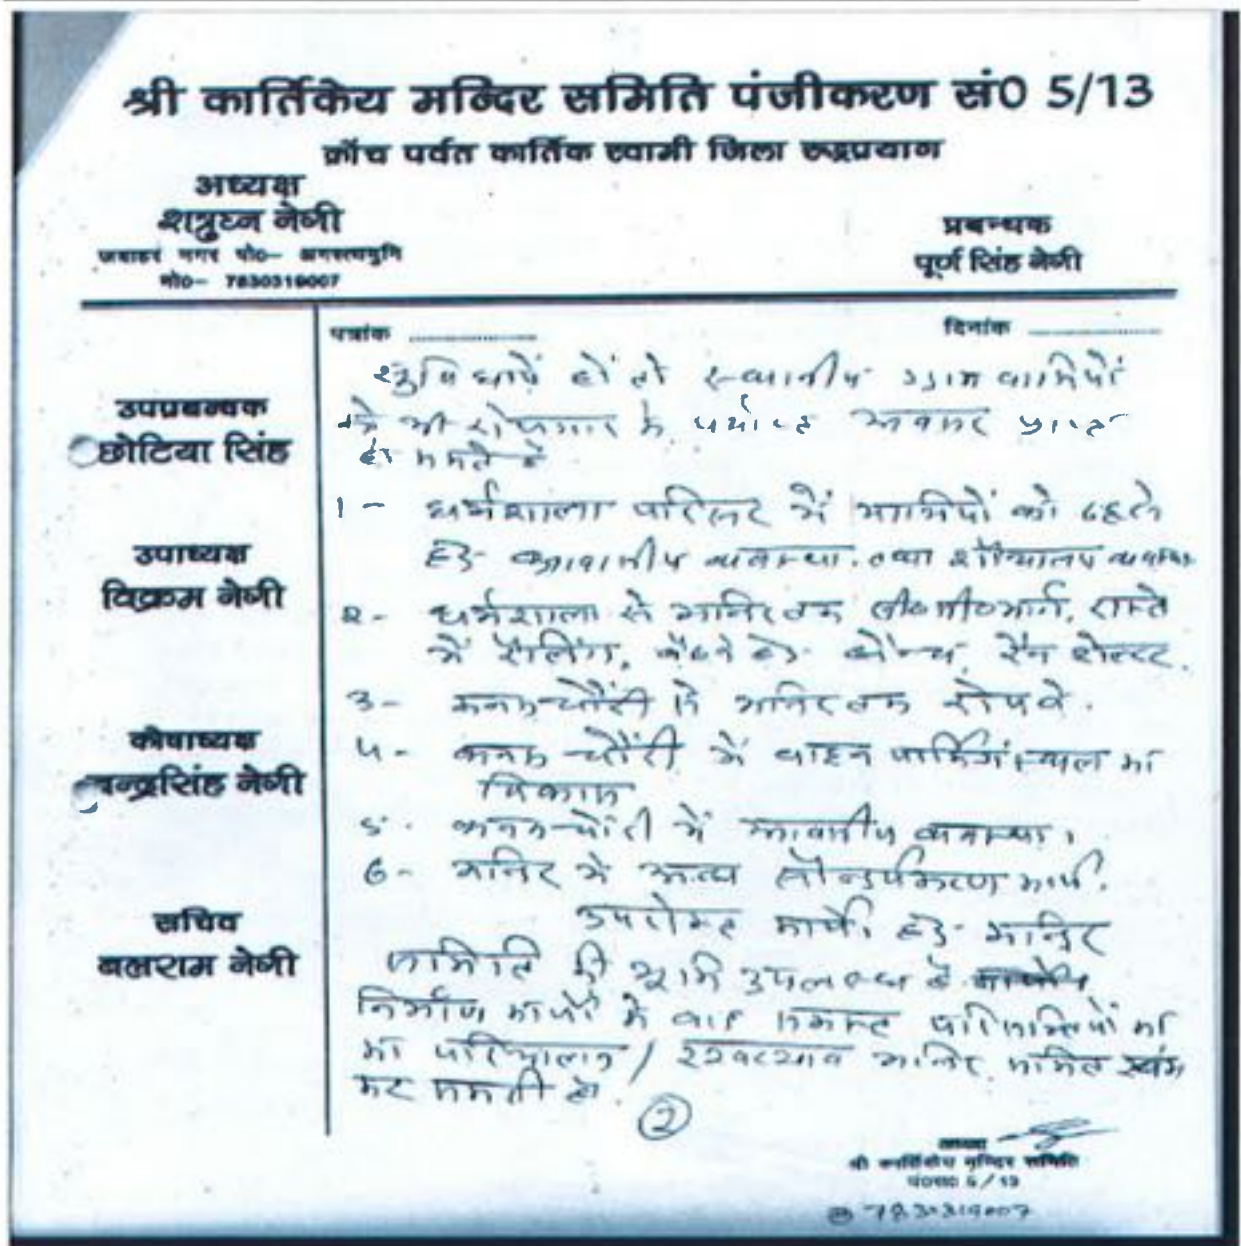 श्री कार्तिकेय मन्दिर समिति पंजीकरण सं0 5/13
क्रौंच पर्वत कार्तिक स्वामी जिला रूद्रप्रयाग
अध्यक्ष
शत्रुघ्न नेगी
जवाहर नगर पो0- अगस्त्यमुनि
मो0- 7830319007
प्रबन्धक
पूर्ण सिंह नेगी
पत्रांक ....................
दिनांक ....................
उपप्रबन्धक
छोटिया सिंह
उपाध्यक्ष
विक्रम नेगी
कोषाध्यक्ष
चन्द्रसिंह नेगी
सचिव
बलराम नेगी
सुविधायें हों तो स्थानीय ग्राम वासियों
को भी रोजगार के पर्याप्त अवसर प्राप्त
हो सकते है
1- धर्मशाला परिसर में यात्रियों को ठहरने
हेतु आवासीय व्यवस्था. तथा शौचालय व्यवस्था
2- धर्मशाला से मन्दिर तक सी०सी०मार्ग, रास्ते
में रैलिंग, बैठने हेतु बैन्च, रैन शेल्टर.
3- कनकचौंरी से मन्दिर तक रोपवे.
4- कनकचौंरी में वाहन पार्किंग स्थल का
विकास
5- कनकचौंरी में आवासीय व्यवस्था।
6- मन्दिर में अन्य सौन्दर्यकरण कार्य.
उपरोक्त कार्यों हेतु मन्दिर
समिति की भूमि उपलब्ध है
निर्माण कार्यों के बाद समस्त परिसम्पतियों का
का परिचालन / रखरखाव मन्दिर समिति स्वंय
कर सकती है.
2
अध्यक्ष
श्री कार्तिकेय मन्दिर समिति
पं0सं0 5/13
7830319007